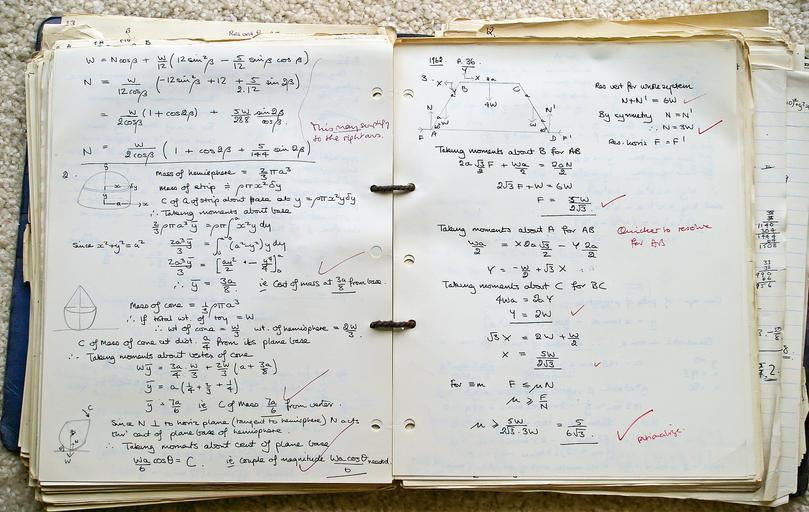 13
W = Ncosβ + W/12 (12sin²β − 5/12 sinβ cosβ)
N = W/12cosβ (−12sin²β + 12 + 5/2.12 sin2β)
= W/2cosβ (1 + cos2β) + 5W/288 sin2β/cosβ.
This may simplify
to the right ans.
N = W/2cosβ (1 + cos2β + 5/144 sin2β)
2.
Mass of hemisphere = 2/3 πρa³
Mass of strip = ρπx²δy
C of G of strip about base at y = ρπx²yδy
∴ Taking moments about base
2/3 ρπa³ȳ = ρπ∫₀ᵃ x²y dy
Since x²+y²=a² 2a³ȳ/3 = ∫₀ᵃ (a²−y²)y dy
2a³ȳ/3 = [ay²/2 − y⁴/4]₀ᵃ
∴ ȳ = 3a/8 ie C of mass at 3a/8 from base.
Mass of cone = 1/3 ρπa³
∴ If total wt. of toy = W
∴ wt of cone = W/3 wt. of hemisphere = 2W/3
C of Mass of cone at dist. a/4 from its plane base
∴ Taking moments about vertex of cone
Wȳ = 3a/4 · W/3 + 2W/3 (a + 3a/8)
ȳ = a(1/4 + 2/3 + 1/4)
ȳ = 7a/6 ie C of Mass 7a/6 from vertex.
C
W
Since N ⊥ to horiz plane (tangent to hemisphere) N acts
thro' cent of plane base of hemisphere.
∴ Taking moments about cent of plane base
Wa/6 cosθ = C. ie couple of magnitude Wa cosθ/6 needed.
1962. P.36.
3.
X Y B C
4W
N W W N'
F A D F'
Res vert for whole system
N+N' = 6W
By symmetry N = N'
∴ N = 3W
Res. horiz F = F'
Taking moments about B for AB
2a√3/2 F + Wa/2 = 2aN/2
2√3F + W = 6W
F = 5W/2√3
Taking moments about A for AB
Quicker to resolve
for AB
Wa/2 = X 2a√3/2 − Y 2a/2
Y = −W/2 + √3 X
Taking moments about C for BC
4Wa = 2aY
Y = 2W
√3X = 2W + W/2
X = 5W/2√3
For ≡m F ≤ μN
μ ≥ F/N
μ ≥ 5W/2√3·3W = 5/6√3
rationalise